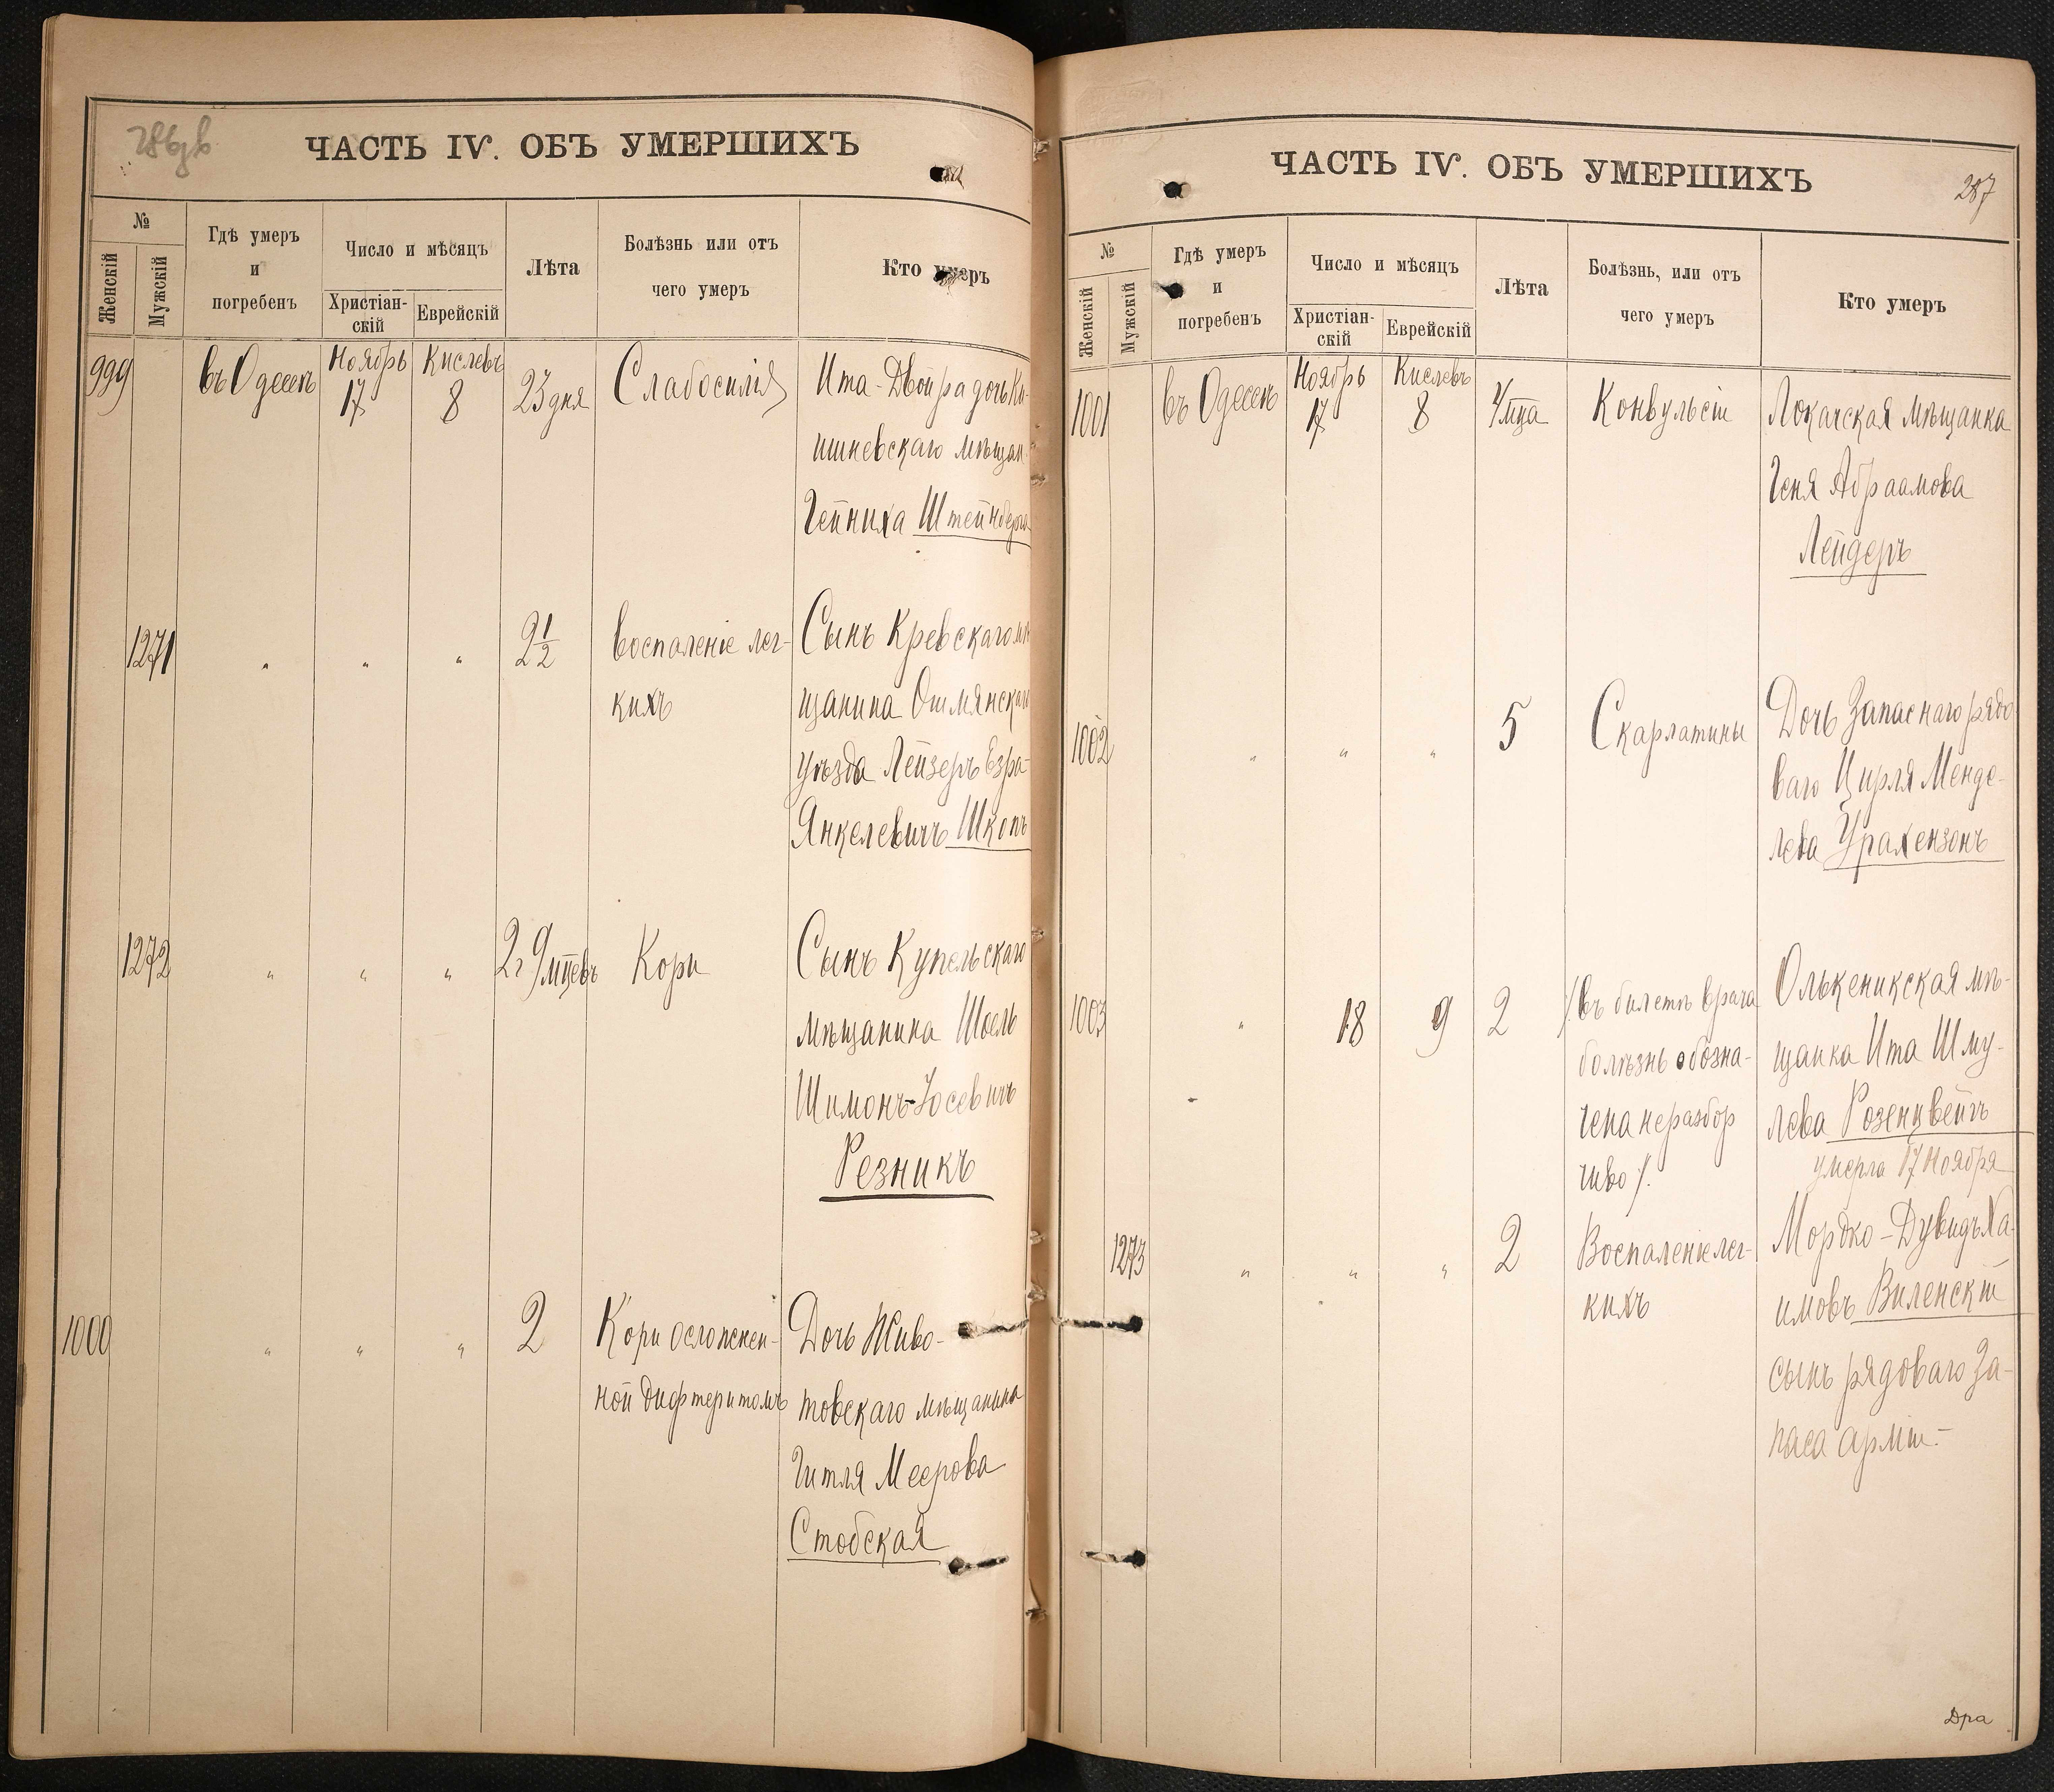 ЧАСТЬ IV. ОБЪ УМЕРШИХЪ
№
Женскій
Мужскій
Гдѣ умеръ
и
погребенъ
Число и мѣсяцъ
Христіан-
скій
Еврейскій
Лѣта
Болѣзнь или отъ
чего умеръ
Кто умеръ
999 въ Одессѣ Ноябрь 17 Кислевъ 8 23 дня Слабосилія Ита-Двойра дочь Ки-
шиневскаго мѣщан
Гейниха Штейнберга
1271 " " " 2 1/2 воспаленіе лег- Сынъ Кревскаго мѣ
кихъ щанина Ошмянскаго
уѣзда Лейзеръ Езра-
Янкелевичъ Шкопъ
1272 " " " 2 г 9 мцевъ Кори Сынъ Купельскаго
мѣщанина Шоель
Шимонъ-Іосевичъ
Резникъ
1000 " " " 2 Кори осложнен- Дочь Живо-
ной дифтеритомъ товскаго мѣщанина
Гитля Меерова
Стобская
ЧАСТЬ IV. ОБЪ УМЕРШИХЪ
287
№
Женскій
Мужскій
Гдѣ умеръ
и
погребенъ
Число и мѣсяцъ
Христіан-
скій
Еврейскій
Лѣта
Болѣзнь, или отъ
чего умеръ
Кто умеръ
1001 въ Одессѣ Ноябрь 17 Кислевъ 8 мца Конвульсіи Локачская мѣщанка
Геня Абраамова
Лейдеръ
1002 " " " 5 Скарлатины Дочь Запаснаго рядо
ваго Цирля Менде-
лева Урахензонъ
1003 " 18 9 2 /въ билетѣ врача Олькеникская мѣ-
болѣзнь обозна- щанка Ита Шму-
чена неразбор лева Розенцвейгъ
чиво/. умерла 17 Ноября
1273 " " " 2 Воспаленіе лег- Мордко-Дувидъ Ха-
кихъ имовъ Виленскій
сынъ рядоваго За-
паса арміи.-
Дра